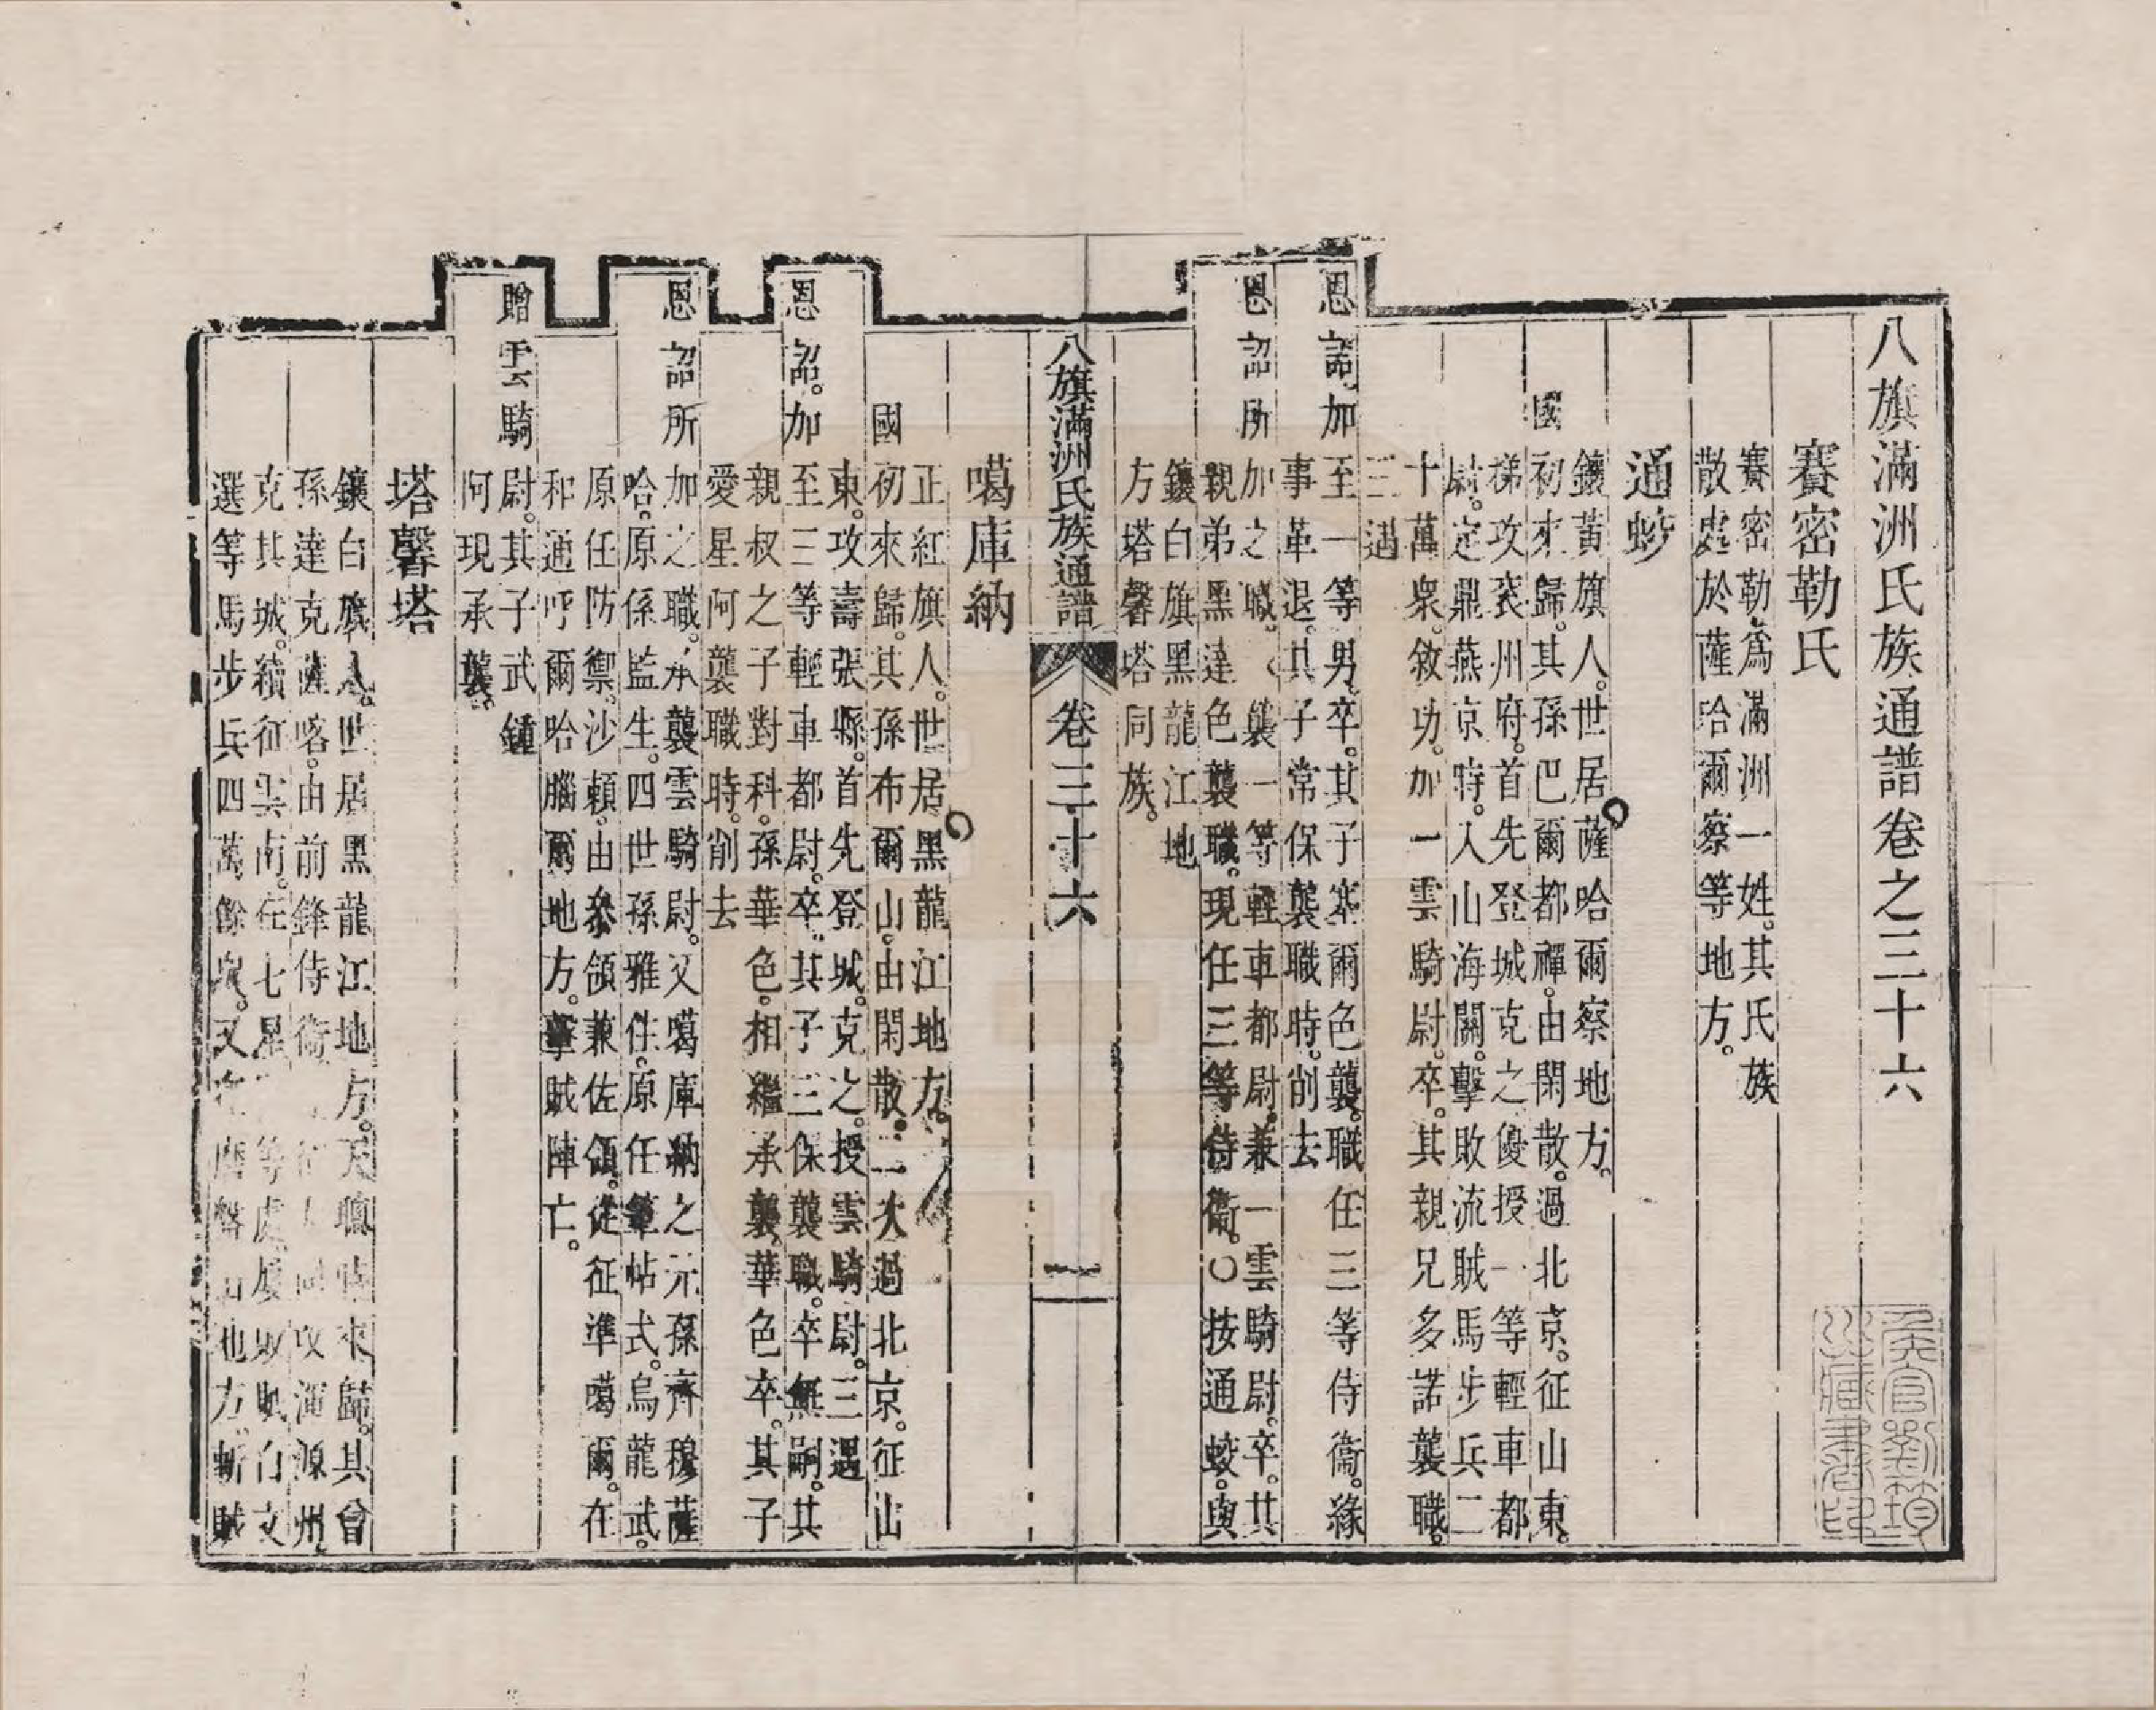 八旗滿洲氏族通譜卷之三十六
賽密勒氏
賽密勒爲滿洲一姓其氏族
散處於薩哈爾察等地方。
通蛟
鑲黃旗人。世居薩哈爾察地方。
國初來歸。其孫巴爾都禪。由閑散。過北京。征山東。
梯攻兖州府。首先登城克之優授一等輕車都
尉。定鼎燕京時。入山海關。擊敗流賊馬步兵二
十萬衆。敘功。加一雲騎尉。卒。其親兄多諾襲職。
三遇
恩詔加至一等男。卒。其子塞爾色襲。職任三等侍衞。緣
事革退。其子常保襲職時。削去
恩詔所加之職。襲一等輕車都尉。兼一雲騎尉。卒。其
親弟黑達色襲職。現任三等侍衞。○按通蛟。與
鑲白旗黑龍江地
方塔馨塔同族。
八旗滿洲氏族通譜 卷三十六 一
噶庫納
正紅旗人。世居黑龍江地方。
國初來歸。其孫布爾山。由閑散。二次過北京。征山
東。攻壽張縣。首先登城。克之。授雲騎尉。三遇
恩詔。加至三等輕車都尉。卒。其子三保襲職。卒。無嗣。其
親叔之子對科。孫華色。相繼承襲。華色卒。其子
愛星阿襲職時。削去
恩詔所加之職。承襲雲騎尉。又噶庫納之元孫齊穆薩
哈。原係監生。四世孫雅住。原任筆帖式。烏龍武。
原任防禦。沙賴。由參領兼佐領。從征準噶爾。在
和通呼爾哈腦爾地方。擊賊陣亡。
贈雲騎尉。其子武鍾
阿現承襲。
塔馨塔
鑲白旗人。世居黑龍江地方。天聰時來歸。其曾
孫達克薩喀。由前鋒侍衞 同攻渾源州
克其城。續征雲南。在七星 等處。屢敗賊
選等馬步兵四萬餘衆。又 山地方。斬賊